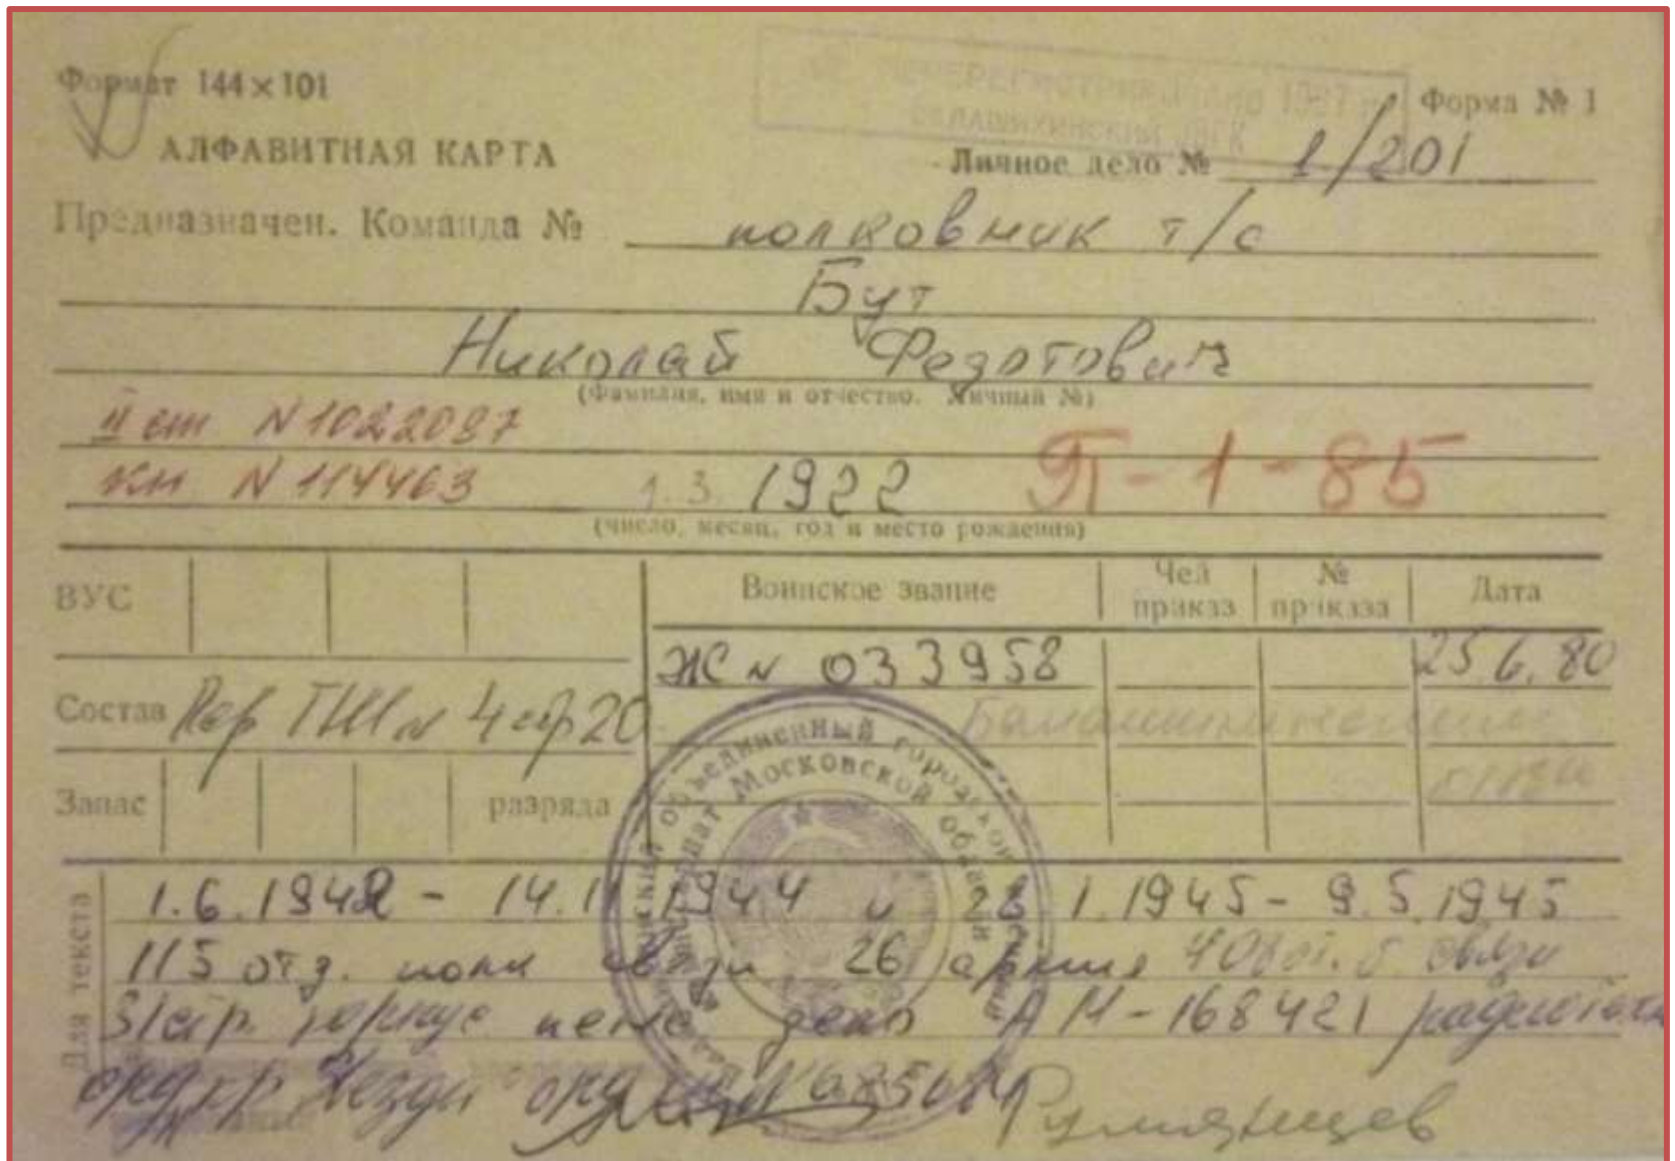 Формат 144×101
ПЕРЕРЕГИСТРИРОВАНО 1987 г.
БАЛАШИХИНСКИЙ ОГВК
Форма № 1
АЛФАВИТНАЯ КАРТА
Личное дело № 1/201
Предназначен. Команда № полковник т/с
Бут
Николай Федотович
(Фамилия, имя и отчество. Личный №)
II ст N 1022087
КМ N 114463 1.3. 1922 П-1-85
(число, месяц, год и место рождения)
ВУС Воинское звание Чей приказ № приказа Дата
Ж N 033958 25.6.80
Состав Пер ГШ N 4 стр 20
Запас разряда
объединенный городской
Московской области
Для текста
1.6.1942 - 14.11 1944 и 1.1945 - 9.5.1945
115 отд. полк связи 26 армия связи
31 стр. корпус дело АМ-168421
орд кр Звезды орд
Румянцев